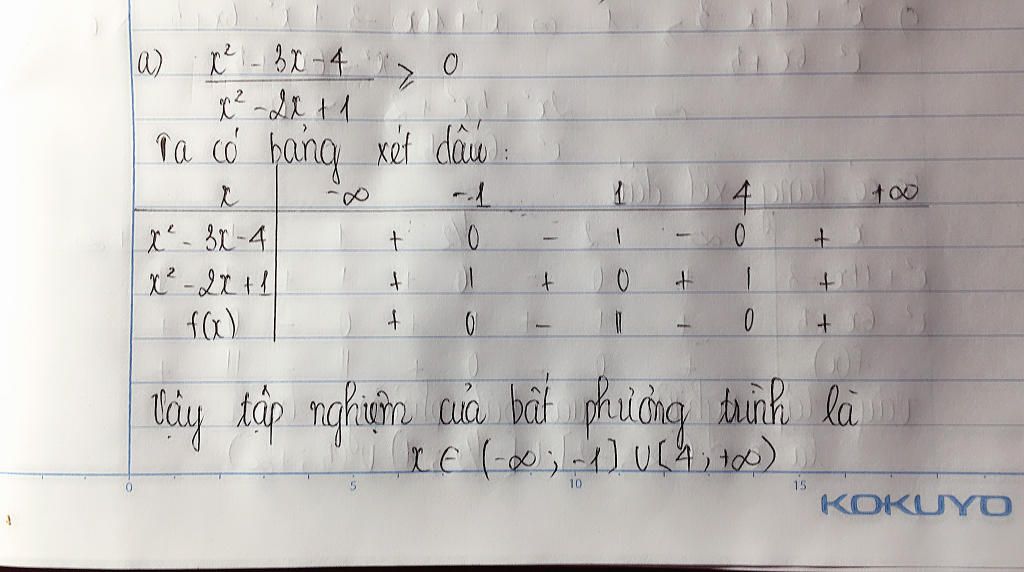 a) x² - 3x - 4 ⩾ 0
x² - 2x + 1
Ta có bảng xét dấu:
x -∞ -1 1 4 +∞
x² - 3x - 4 + 0 - | - 0 +
x² - 2x + 1 + | + 0 + | +
f(x) + 0 - || - 0 +
Vậy tập nghiệm của bất phương trình là
x ∈ (-∞; -1] ∪ [4; +∞)
0 5 10 15
KOKUYO